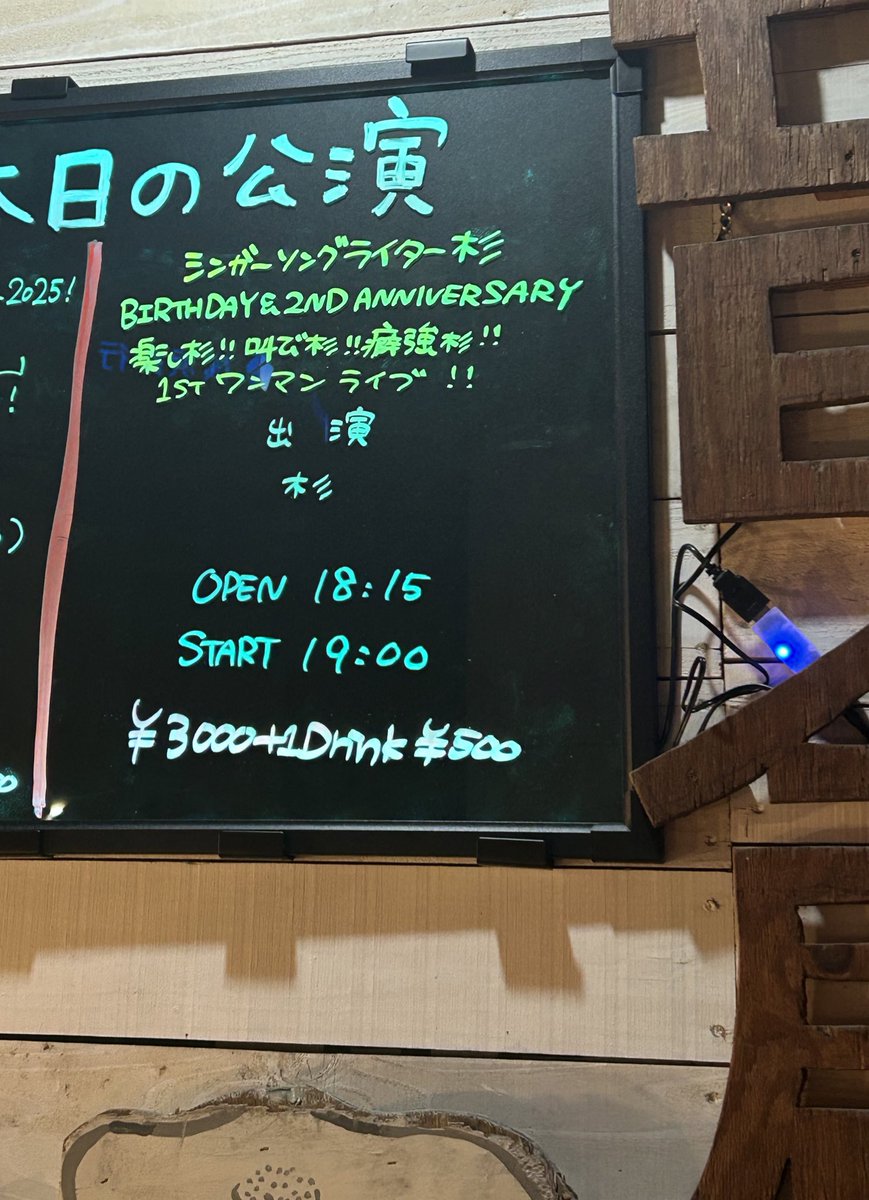 本日の公演
2025!
シンガーソングライター杉
BIRTHDAY & 2ND ANNIVERSARY
楽し杉!! 叫び杉!! 癖強杉!!
1ST ワンマン ライブ !!
出 演
杉
OPEN 18:15
START 19:00
¥3000+1Drink ¥500